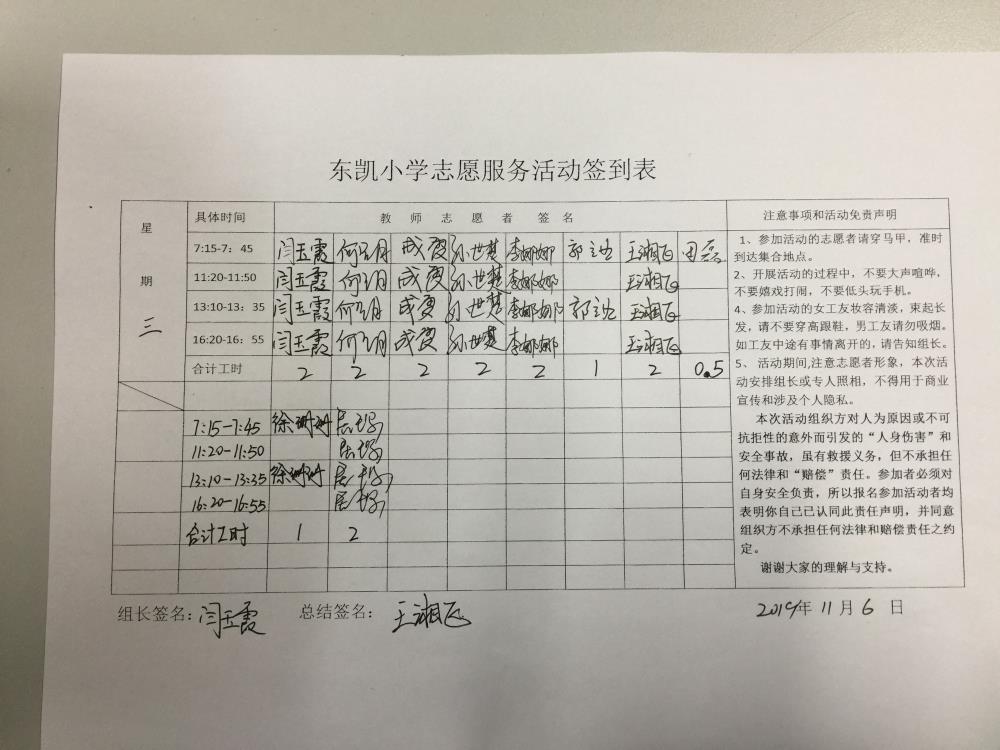 东凯小学志愿服务活动签到表
星期三
具体时间 教师志愿者签名 注意事项和活动免责声明
7:15-7：45 闫玉霞 何 月 成霞 孙世楚 李娜娜 郭 王湘飞 田磊
11:20-11:50 闫玉霞 何 月 成霞 孙世楚 李娜娜 王湘飞
13:10-13：35 闫玉霞 何 月 成霞 孙世楚 李娜娜 郭 王湘飞
16:20-16：55 闫玉霞 何 月 成霞 孙世楚 李娜娜 王湘飞
合计工时 2 2 2 2 2 1 2 0.5
7:15-7:45 徐珊珊
11:20-11:50
13:10-13:35 徐珊珊
16:20-16:55
合计工时 1 2
1、参加活动的志愿者请穿马甲，准时
到达集合地点。
2、开展活动的过程中，不要大声喧哗，
不要嬉戏打闹，不要低头玩手机。
4、参加活动的女工友妆容清淡，束起长
发，请不要穿高跟鞋，男工友请勿吸烟。
如工友中途有事情离开的，请告知组长。
5、活动期间,注意志愿者形象，本次活
动安排组长或专人照相，不得用于商业
宣传和涉及个人隐私。
本次活动组织方对人为原因或不可
抗拒性的意外而引发的“人身伤害”和
安全事故，虽有救援义务，但不承担任
何法律和“赔偿”责任。参加者必须对
自身安全负责，所以报名参加活动者均
表明你自己已认同此责任声明，并同意
组织方不承担任何法律和赔偿责任之约
定。
谢谢大家的理解与支持。
组长签名：闫玉霞 总结签名：王湘飞 2019年11月6日